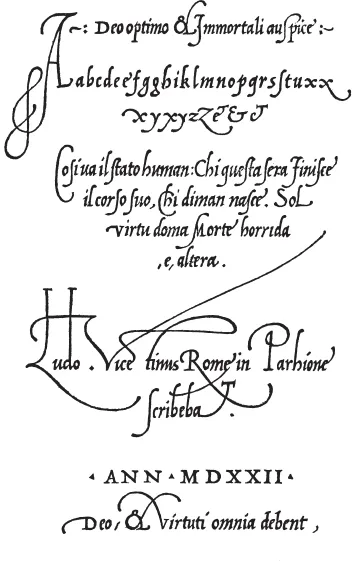 ~: Deo optimo & Immortali auspice :~
Aabcdeefgghiklmnopqrsſstuxx
xyyxyzzZ&&&
Cosi va il stato human: Chi questa sera finisce
il corso suo, Chi diman nasce. Sol
virtu doma Morte horrida
, e, altera .
Ludo . Vicentinus Rome in Parhione
scribebaT.
· ANN · MDXXII ·
Deo, & Virtuti omnia debent,